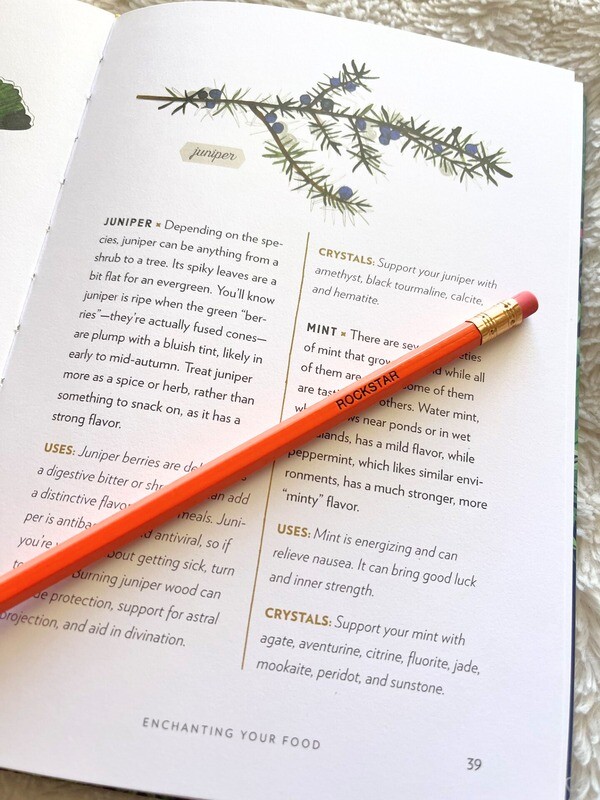 juniper
JUNIPER × Depending on the spe-
cies, juniper can be anything from a
shrub to a tree. Its spiky leaves are a
bit flat for an evergreen. You'll know
juniper is ripe when the green "ber-
ries"—they're actually fused cones—
are plump with a bluish tint, likely in
early to mid-autumn. Treat juniper
more as a spice or herb, rather than
something to snack on, as it has a
strong flavor.
USES: Juniper berries are
a digestive bitter or can add
a distinctive meals. Juni-
per is and antiviral, so if
you're about getting sick, turn
Burning juniper wood can
protection, support for astral
projection, and aid in divination.
CRYSTALS: Support your juniper with
amethyst, black tourmaline, calcite,
and hematite.
MINT × There are
of mint that while all
of them are some of them
are others. Water mint,
near ponds or in wet
has a mild flavor, while
peppermint, which likes similar envi-
ronments, has a much stronger, more
"minty" flavor.
USES: Mint is energizing and can
relieve nausea. It can bring good luck
and inner strength.
CRYSTALS: Support your mint with
agate, aventurine, citrine, fluorite, jade,
mookaite, peridot, and sunstone.
ROCKSTAR
ENCHANTING YOUR FOOD
39